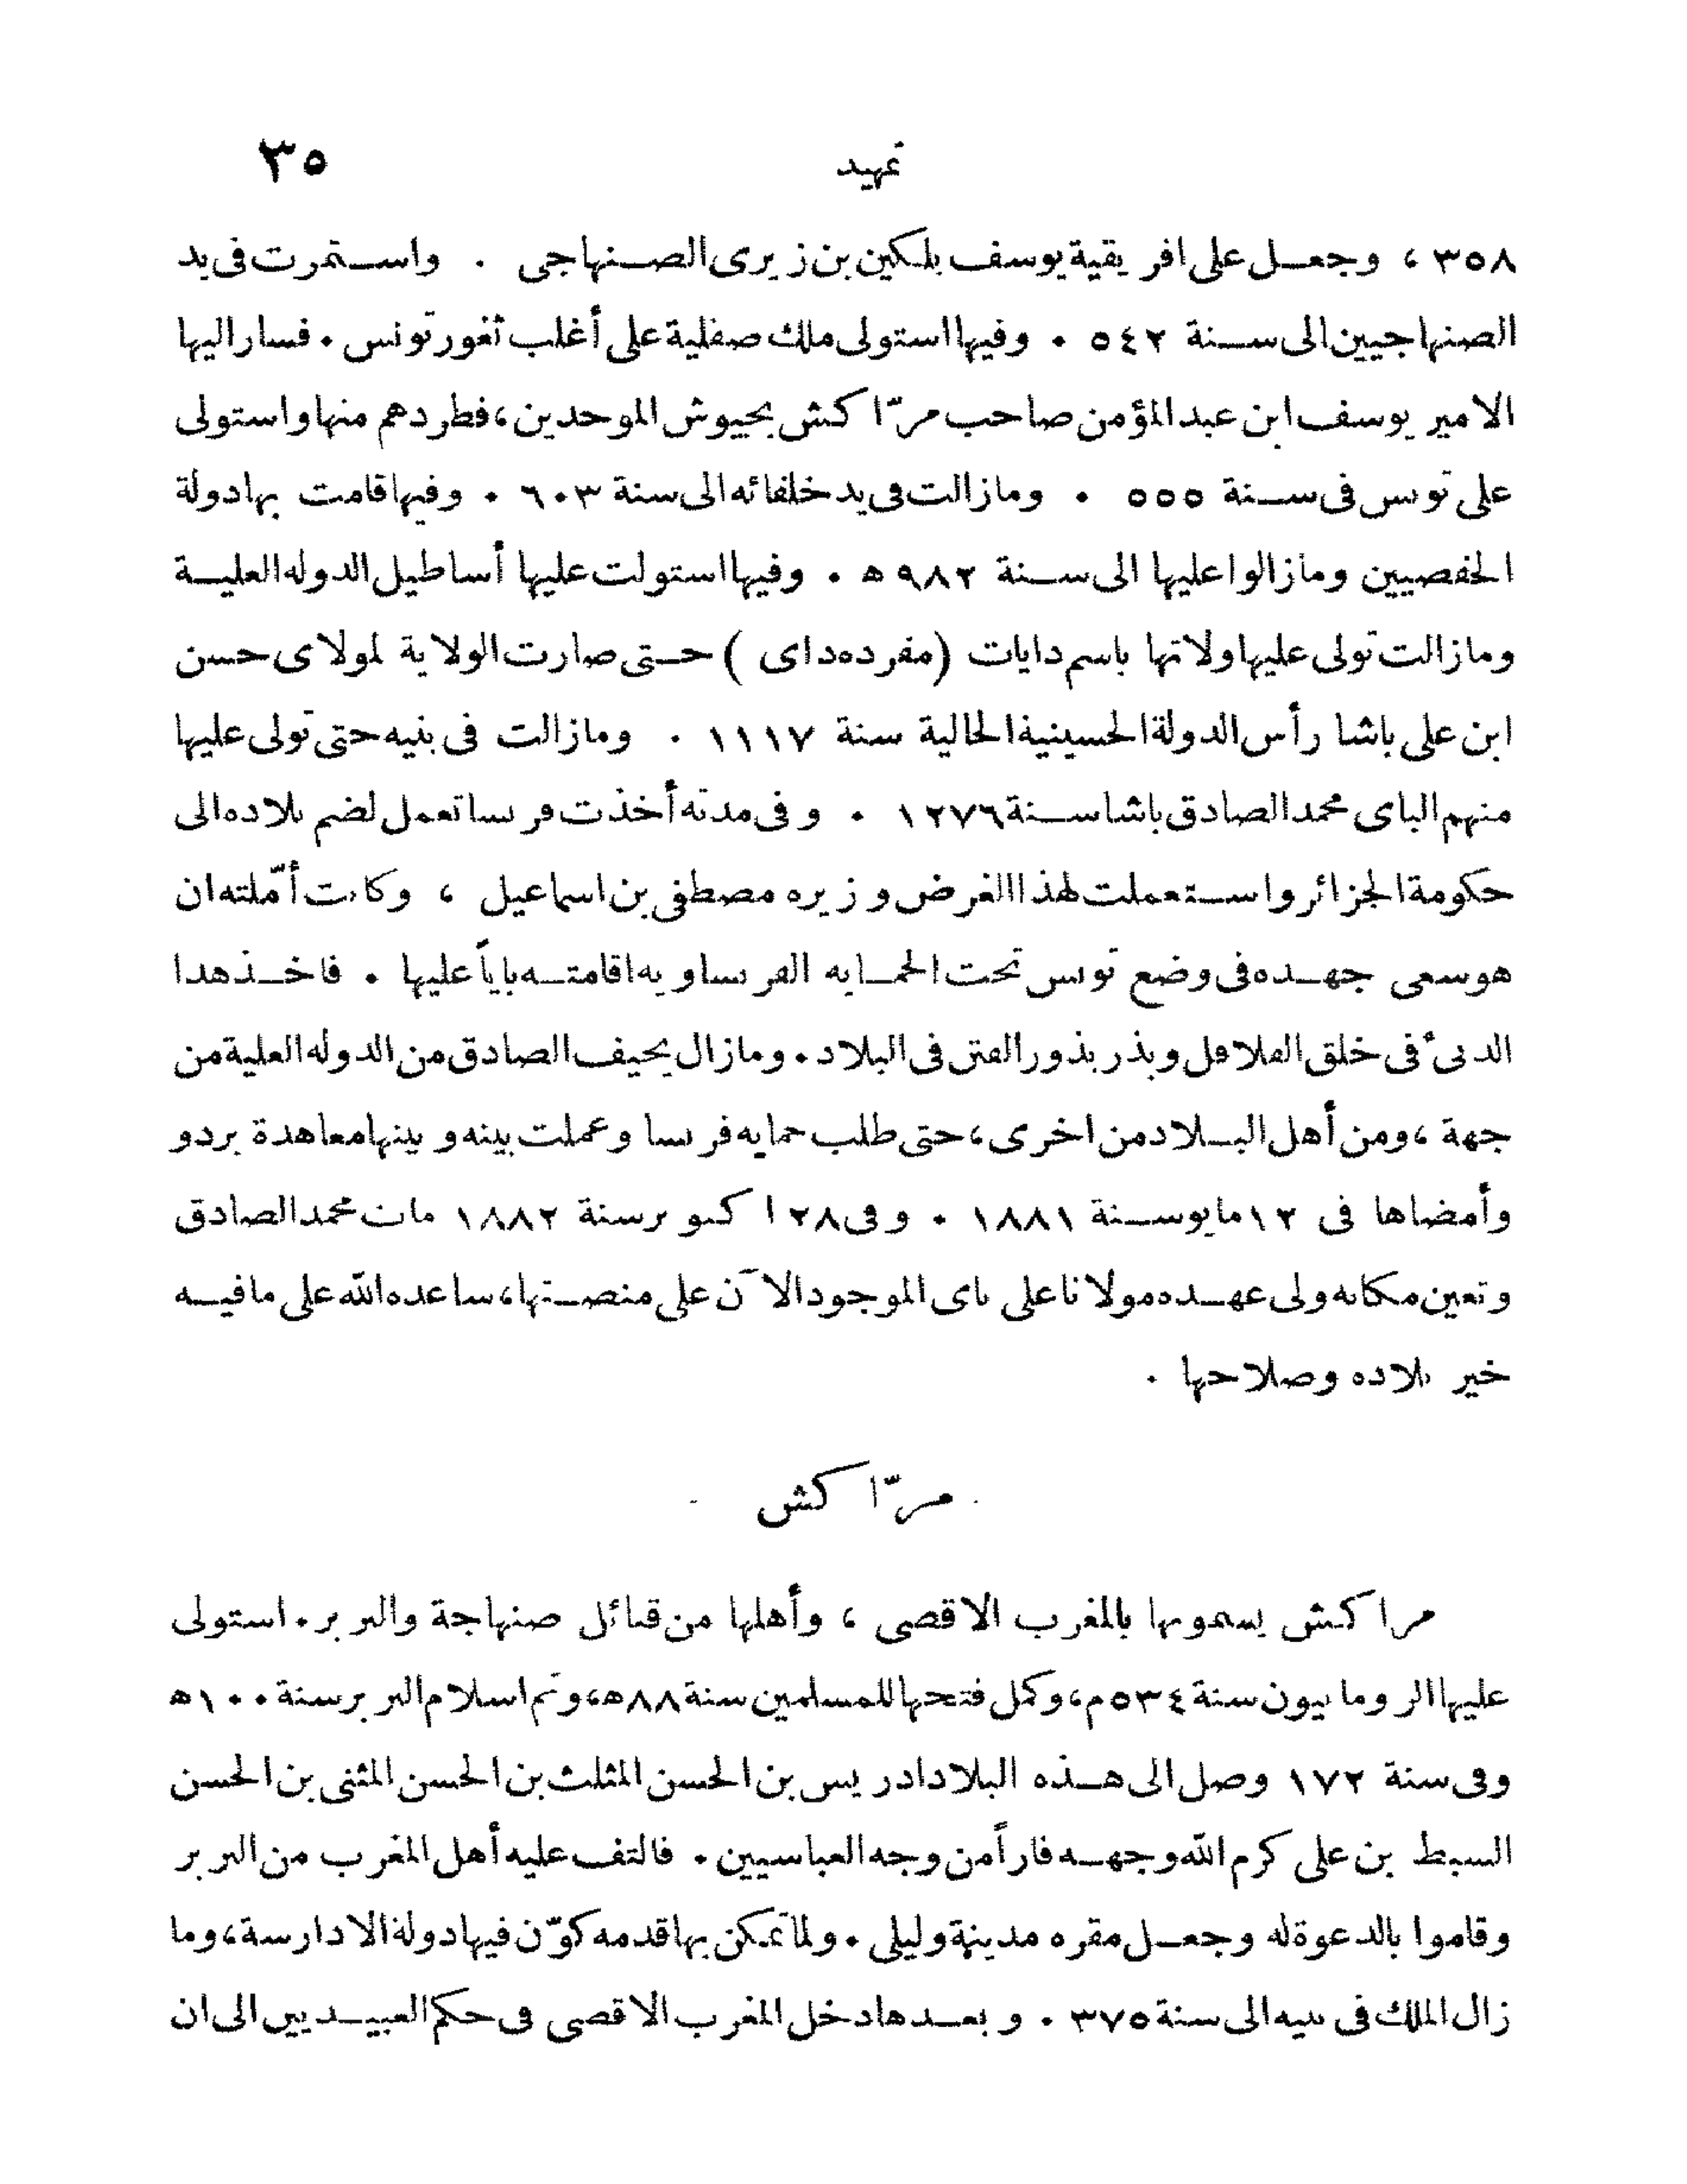 تمهيد ٣٥
٣٥٨ ، وجعل على افريقية يوسف بلكين بن زيرى الصنهاجى . واستمرت فى يد
الصنهاجيين الى سنة ٥٤٢ . وفيها استولى ملك صقلية على أغلب ثغور تونس . فسار اليها
الامير يوسف ابن عبد المؤمن صاحب مرّاكش بجيوش الموحدين ، فطردهم منها واستولى
على تونس فى سنة ٥٥٥ . ومازالت فى يد خلفائه الى سنة ٦٠٣ . وفيها قامت بها دولة
الحفصيين ومازالوا عليها الى سنة ٩٨٢ ه . وفيها استولت عليها أساطيل الدوله العلية
ومازالت تولى عليها ولاتها باسم دايات (مفرده داى ) حتى صارت الولاية لمولاى حسن
ابن على باشا رأس الدولة الحسينية الحالية سنة ١١١٧ . ومازالت فى بنيه حتى تولى عليها
منهم الباى محمد الصادق باشا سنة ١٢٧٦ . وفى مدته أخذت فرنسا تعمل لضم بلاده الى
حكومة الجزائر واستعملت لهذا الغرض وزيره مصطفى بن اسماعيل ، وكانت أمّلته ان
هو سعى جهده فى وضع تونس تحت الحمايه الفرنساويه اقامته باياً عليها . فاخذ هذا
الدنىء فى خلق القلاقل وبذر بذور الفتن فى البلاد . ومازال يخيف الصادق من الدوله العلية من
جهة ، ومن أهل البلاد من اخرى ، حتى طلب حمايه فرنسا وعملت بينه وبينها معاهدة بردو
وأمضاها فى ١٢ مايو سنة ١٨٨١ . وفى ٢٨ اكتوبر سنة ١٨٨٢ مات محمد الصادق
وتعين مكانه ولى عهده مولانا على باى الموجود الآن على منصتها ، ساعده الله على مافيه
خير بلاده وصلاحها .
مرّاكش
مراكش يسمونها بالمغرب الاقصى ، وأهلها من قبائل صنهاجة والبربر . استولى
عليها الرومانيون سنة ٥٣٤ م ، وكمل فتحها للمسلمين سنة ٨٨ ه ، وتم اسلام البربر سنة ١٠٠ ه
وفى سنة ١٧٢ وصل الى هذه البلاد ادريس بن الحسن المثلث بن الحسن المثنى بن الحسن
السبط بن على كرم الله وجهه فاراً من وجه العباسيين . فالتف عليه أهل المغرب من البربر
وقاموا بالدعوة له وجعل مقره مدينة وليلى . ولما تمكن بها قدمه كوّن فيها دولة الادارسة ، وما
زال الملك فى بنيه الى سنة ٣٧٥ . وبعدها دخل المغرب الاقصى فى حكم العبيديين الى ان